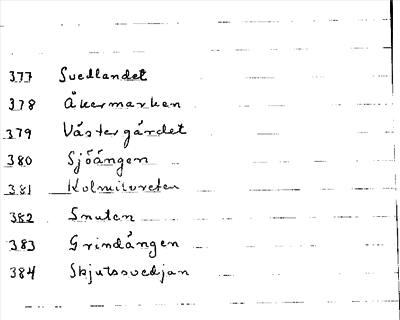 377 Svedlandet
378 Åkermarken
379 Västergärdet
380 Sjöängen
381 Kolmilureten
382 Snuten
383 Grindängen
384 Skjutssvedjan